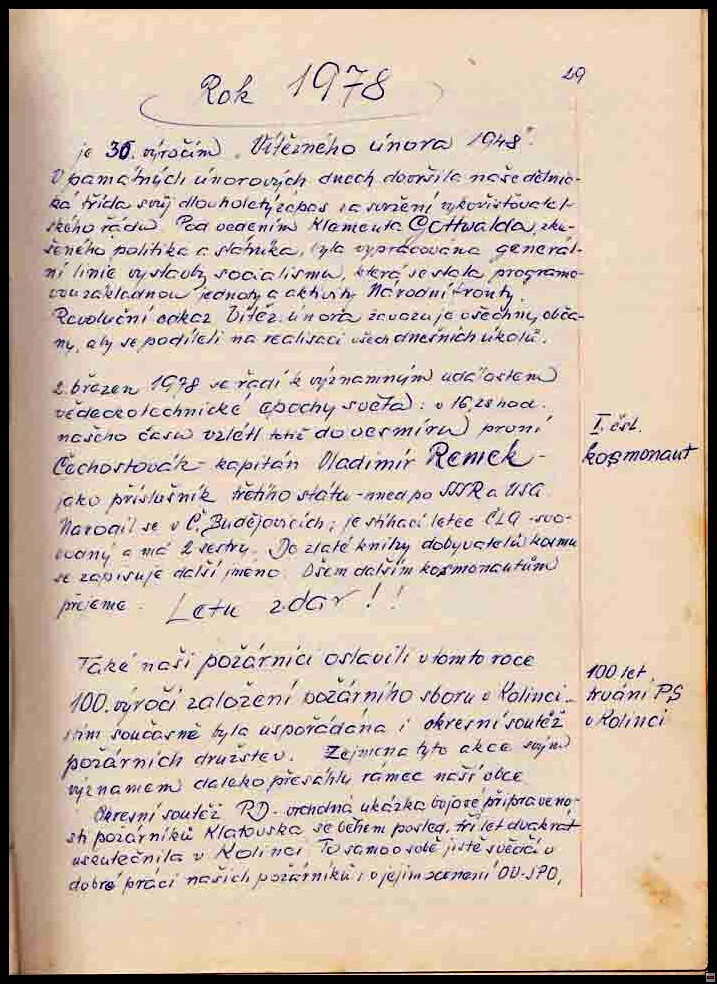 29
Rok 1978
je 30. výročím „Vítězného února 1948“.
V památných únorových dnech dovršila naše dělnic-
ká třída svůj dlouholetý zápas za svržení vykořisťovatel-
ského řádu. Pod vedením Klementa Gottwalda, zku-
šeného politika a státníka, byla vypracována generál-
ní linie výstavby socialismu, která se stala programo-
vou základnou jednoty a aktivity Národní fronty.
Revoluční odkaz Vítěz. února zavazuje všechny obča-
ny, aby se podíleli na realisaci všech dnešních úkolů.
2. březen 1978 se řadí k významným událostem
vědeckotechnické epochy světa: v 16,28 hod.
našeho času vzlétl totiž do vesmíru první
I. čsl.
Čechoslovák - kapitán Vladimír Remek -
kosmonaut
jako příslušník třetího státu - hned po SSSR a USA.
Narodil se v Č. Budějovicích, je stíhací letec ČLA - svo-
bodný a má 2 sestry. Do zlaté knihy dobyvatelů kosmu
se zapisuje další jméno. Všem dalším kosmonautům
přejeme - Letu zdar!!
Také naši požárníci oslavili v tomto roce
100 let
100. výročí založení požárního sboru v Kolinci -
trvání PS
tím současně byla uspořádána i okresní soutěž
v Kolinci
požárních družstev. Zejména tyto akce svým
významem daleko přesáhly rámec naší obce.
Okresní soutěž PD - vrcholná ukázka bojové připraveno-
sti požárníků Klatovska se během posled. tří let dvakrát
uskutečnila v Kolinci. To samo o sobě jistě svědčí o
dobré práci našich požárníků i o jejím ocenění OV-SPO,